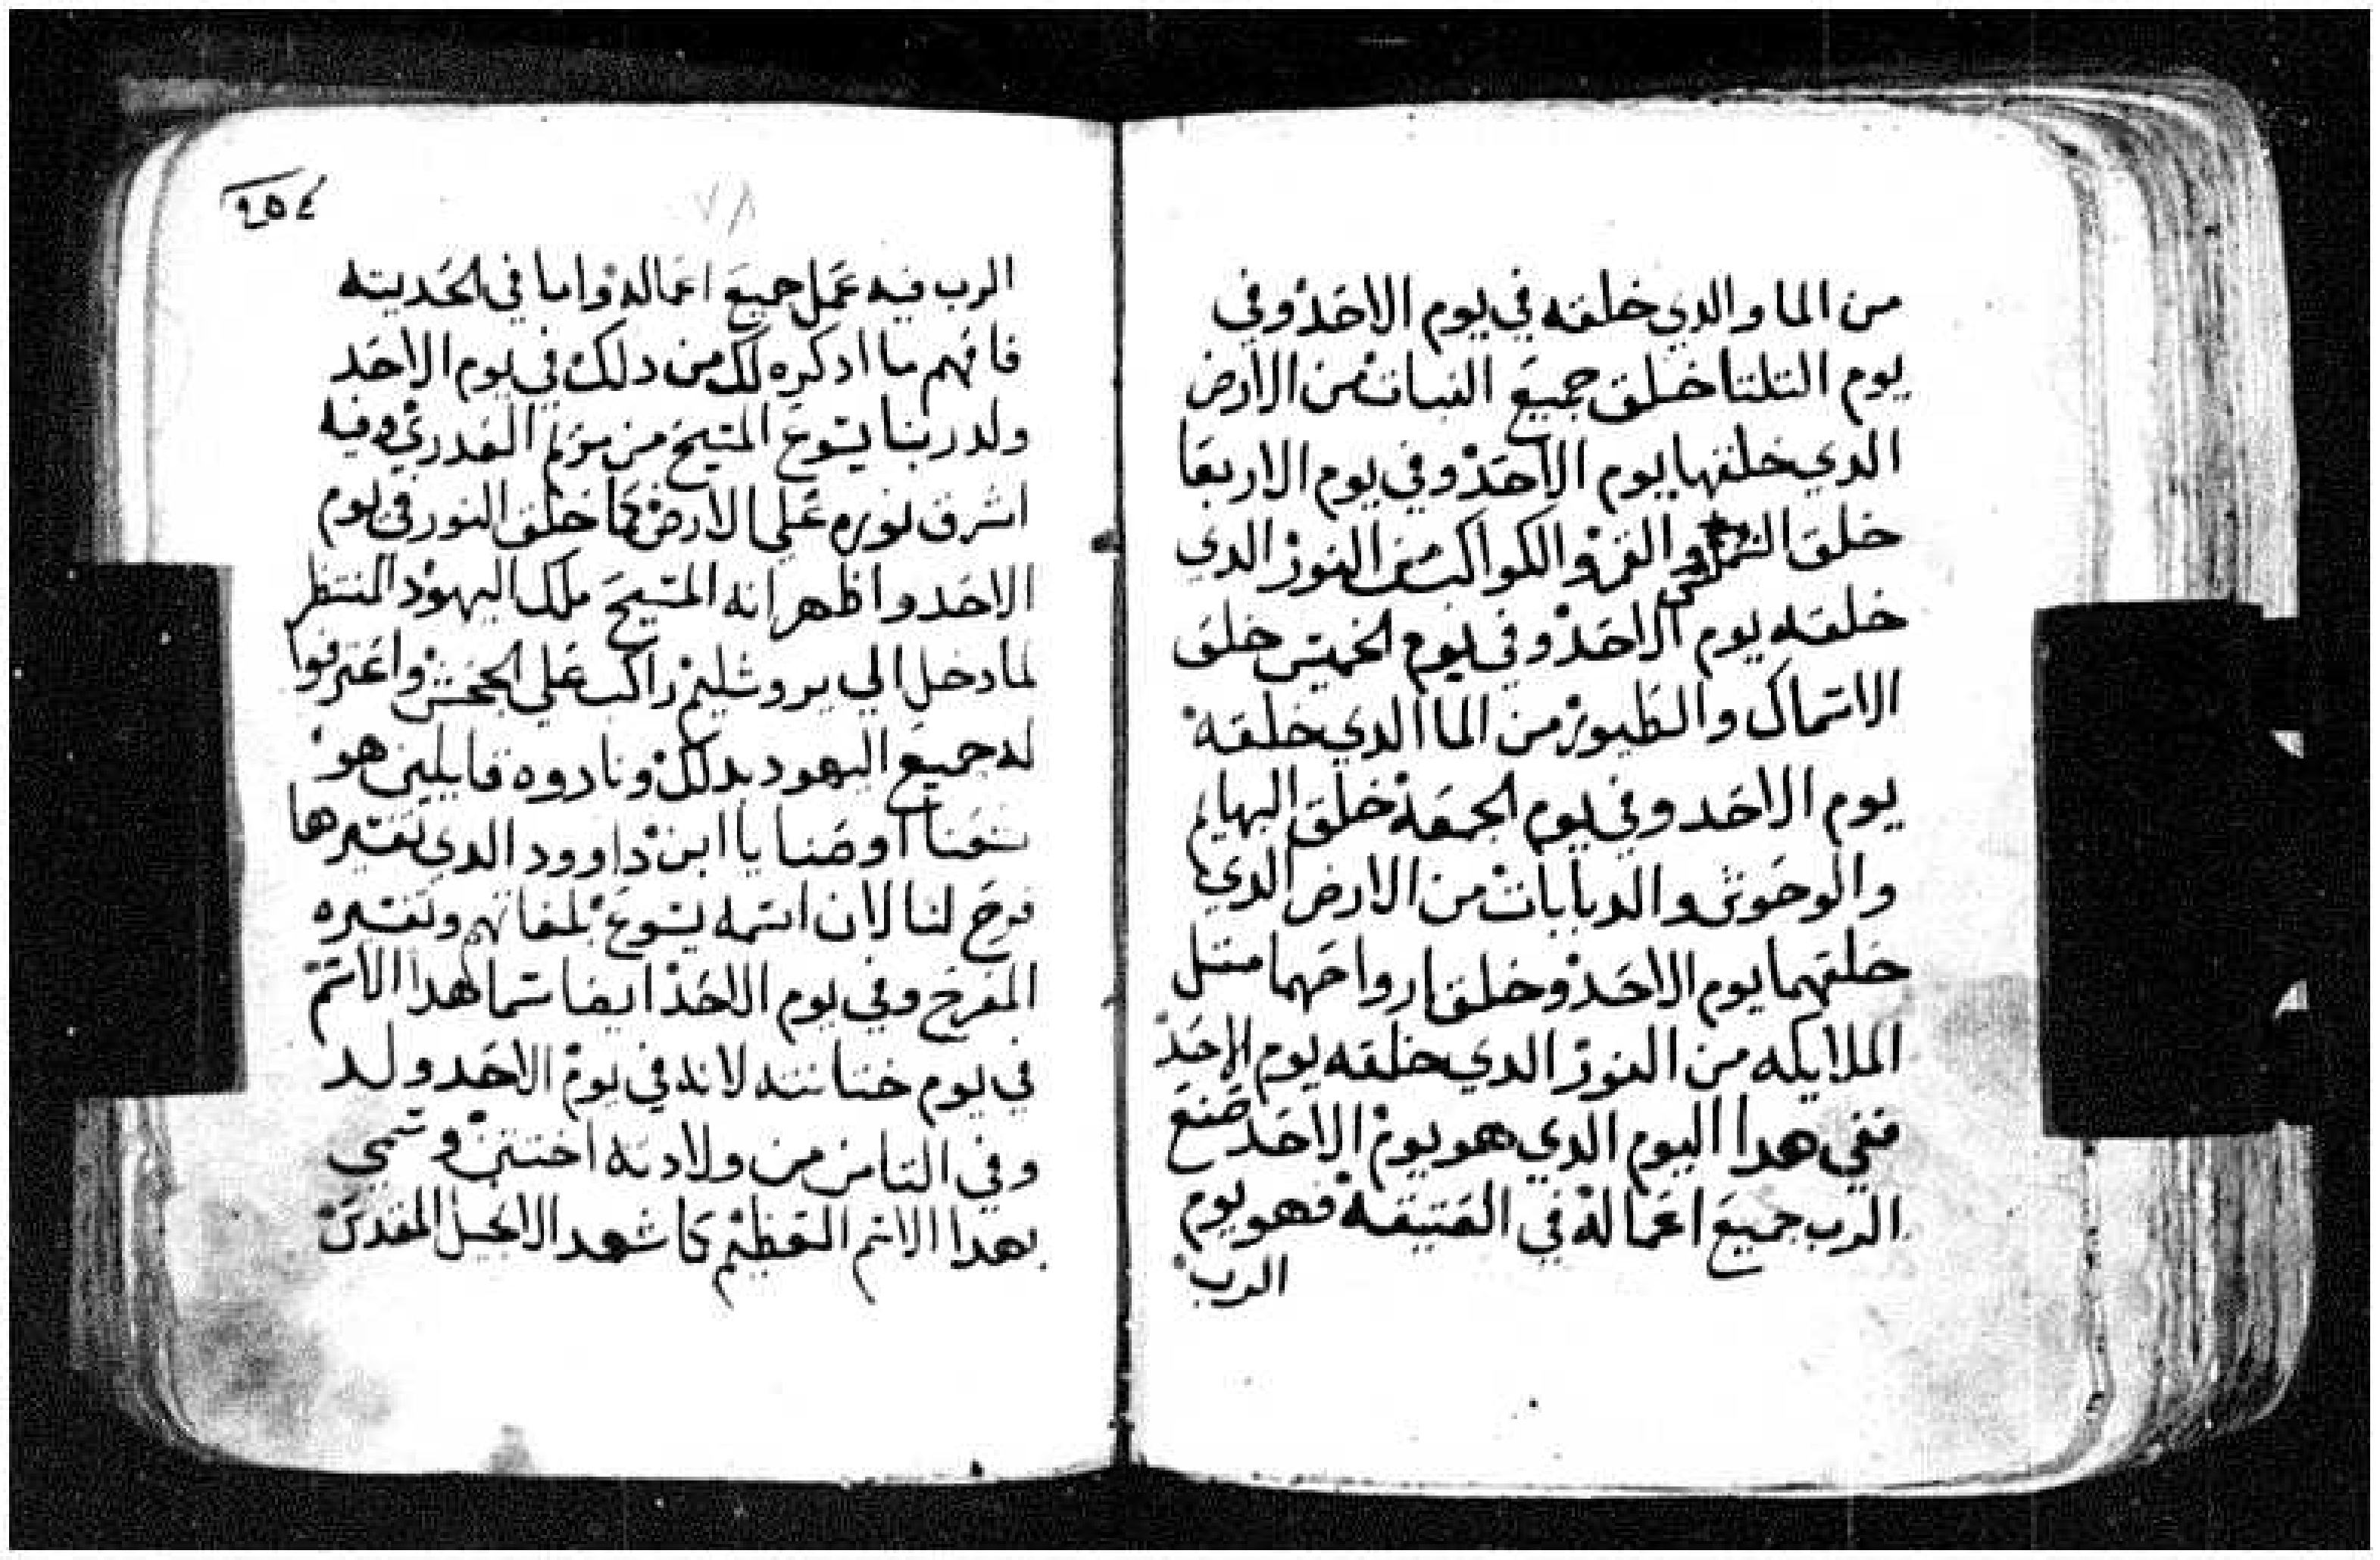 من الما والدي خلقه في يوم الاحد وفي
يوم التلتا خلق جميع النبات من الارض
الدي خلقها يوم الاحد وفي يوم الاربعا
خلق الشمس والقمر والكواكب من النور الدي
خلقه يوم الاحد وفي يوم الخميس خلق
الاسماك والطيور من الما الدي خلقه
يوم الاحد وفي يوم الجمعة خلق البهايم
والوحوش والدبابات من الارض الدي
خلقهما يوم الاحد وخلق ارواحهما متل
الملايكه من النور الدي خلقه يوم الاحد
ففي هدا اليوم الدي هو يوم الاحد صنع
الرب جميع اعماله في العتيقة فهو يوم
الرب
الرب فيه عمل جميع اعماله واما في الحديته
فافهم ما ادكره لك من دلك في يوم الاحد
ولد ربنا يسوع المسيح من مريم العدري وفيه
اشرق نوره علي الارض كما خلق النور في يوم
الاحد واظهر انه المسيح ملك اليهود المنتظر
لما دخل الي يروشليم راكب علي الجحش واعترفوا
له جميع اليهود بدلك ونادوه قايلين هو
شعنا اوصنا يا ابن داوود الدي تفسيرها
فرح لنا لان اسمه يسوع بلغاتهم وتفسيره
المفرح وفي يوم الاحد ايضا سما هدا الاسم
في يوم ختانته لانه في يوم الاحد ولد
وفي التامن من ولادته اختتن وسمي
بهدا الاسم العظيم كما شهد الانجيل المقدس